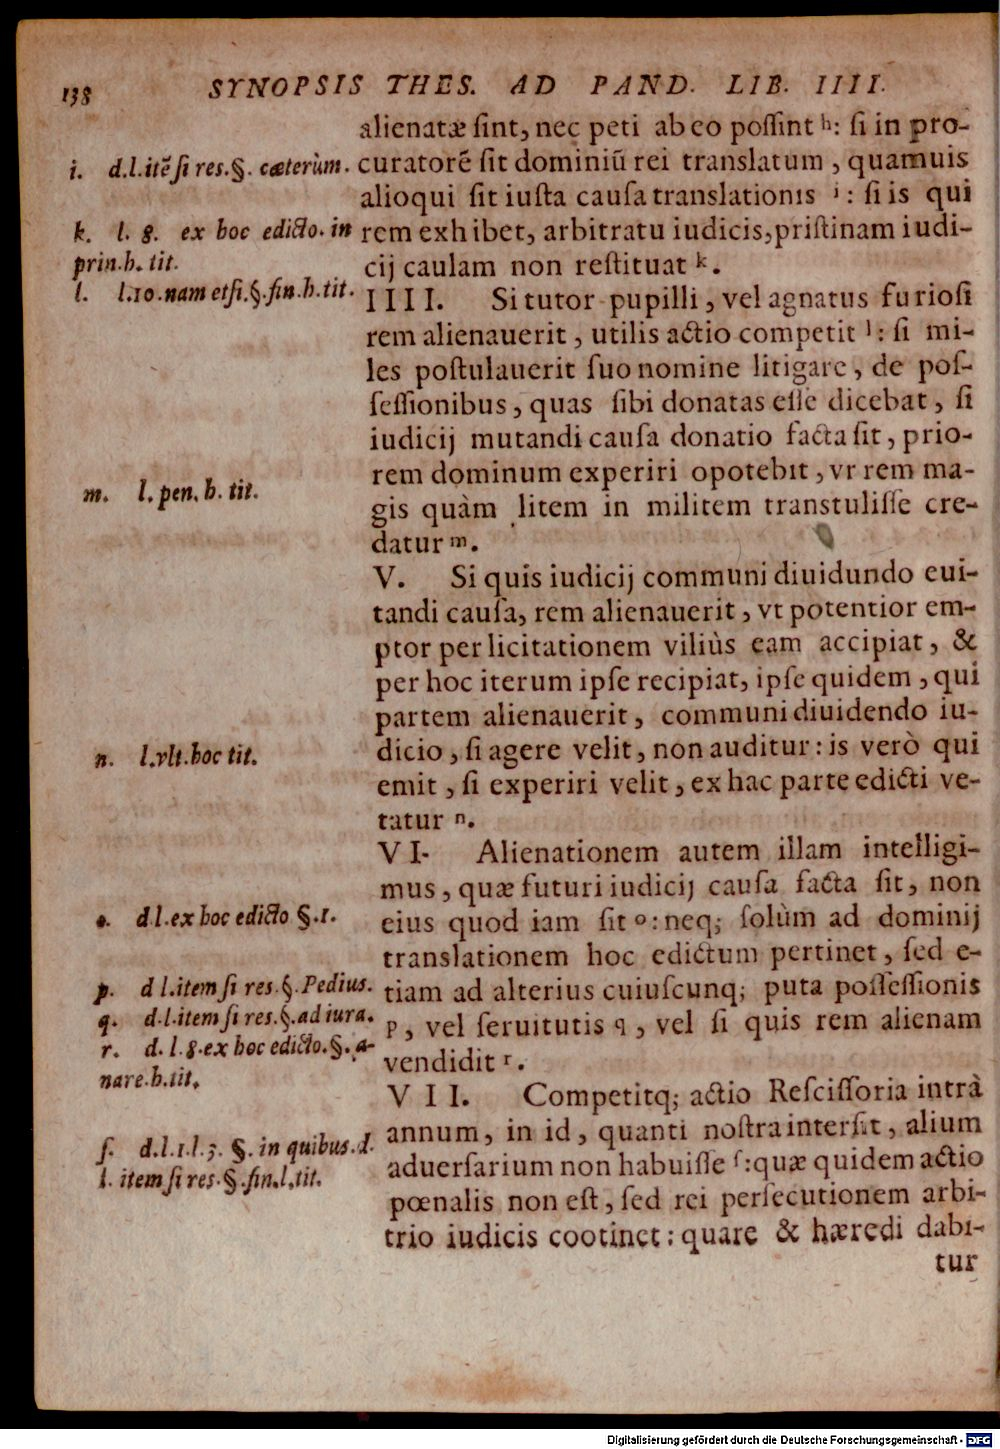 138 SYNOPSIS THES. AD PAND. LIB. IIII.
alienatæ ſint, nec peti ab eo poſſint h: ſi in pro-
curatorẽ ſit dominiũ rei translatum, quamuis
alioqui ſit iuſta cauſa translationis i: ſi is qui
rem exhibet, arbitratu iudicis, priſtinam iudi-
cij caulam non reſtituat k.
IIII. Si tutor pupilli, vel agnatus furioſi
rem alienauerit, utilis actio competit l: ſi mi-
les poſtulauerit ſuo nomine litigare, de poſ-
ſeſſionibus, quas ſibi donatas eſſe dicebat, ſi
iudicij mutandi cauſa donatio facta ſit, prio-
rem dominum experiri opotebit, vr rem ma-
gis quàm litem in militem transtuliſſe cre-
datur m.
V. Si quis iudicij communi diuidundo eui-
tandi cauſa, rem alienauerit, vt potentior em-
ptor per licitationem viliùs eam accipiat, &
per hoc iterum ipſe recipiat, ipſe quidem, qui
partem alienauerit, communi diuidendo iu-
dicio, ſi agere velit, non auditur: is verò qui
emit, ſi experiri velit, ex hac parte edicti ve-
tatur n.
VI. Alienationem autem illam intelligi-
mus, quæ futuri iudicij cauſa facta ſit, non
eius quod iam ſit o: neq; ſolùm ad dominij
translationem hoc edictum pertinet, ſed e-
tiam ad alterius cuiuſcunq; puta poſſeſſionis
p, vel ſeruitutis q, vel ſi quis rem alienam
vendidit r.
VII. Competitq; actio Reſciſſoria intrà
annum, in id, quanti noſtra interſit, alium
aduerſarium non habuiſſe ſ: quæ quidem actio
pœnalis non eſt, ſed rei perſecutionem arbi-
trio iudicis cootinet: quare & hæredi dabi-
tur
i. d.l.itẽ ſi res.§. cæterùm.
k. l. 8. ex hoc edicto. in
prin.h. tit.
l. l.10.nam etſi.§.fin.h.tit.
m. l. pen. h. tit.
n. l.vlt.hoc tit.
o. d.l.ex hoc edicto §.1.
p. d l.item ſi res.§.Pedius.
q. d.l.item ſi res.§.ad iura.
r. d. l.8.ex hoc edicto.§.a-
nare.h.tit.
ſ. d.l.1.l.3. §. in quibus.d.
l. item ſi res.§.fin.l.tit.
Digitalisierung gefördert durch die Deutsche Forschungsgemeinschaft - DFG